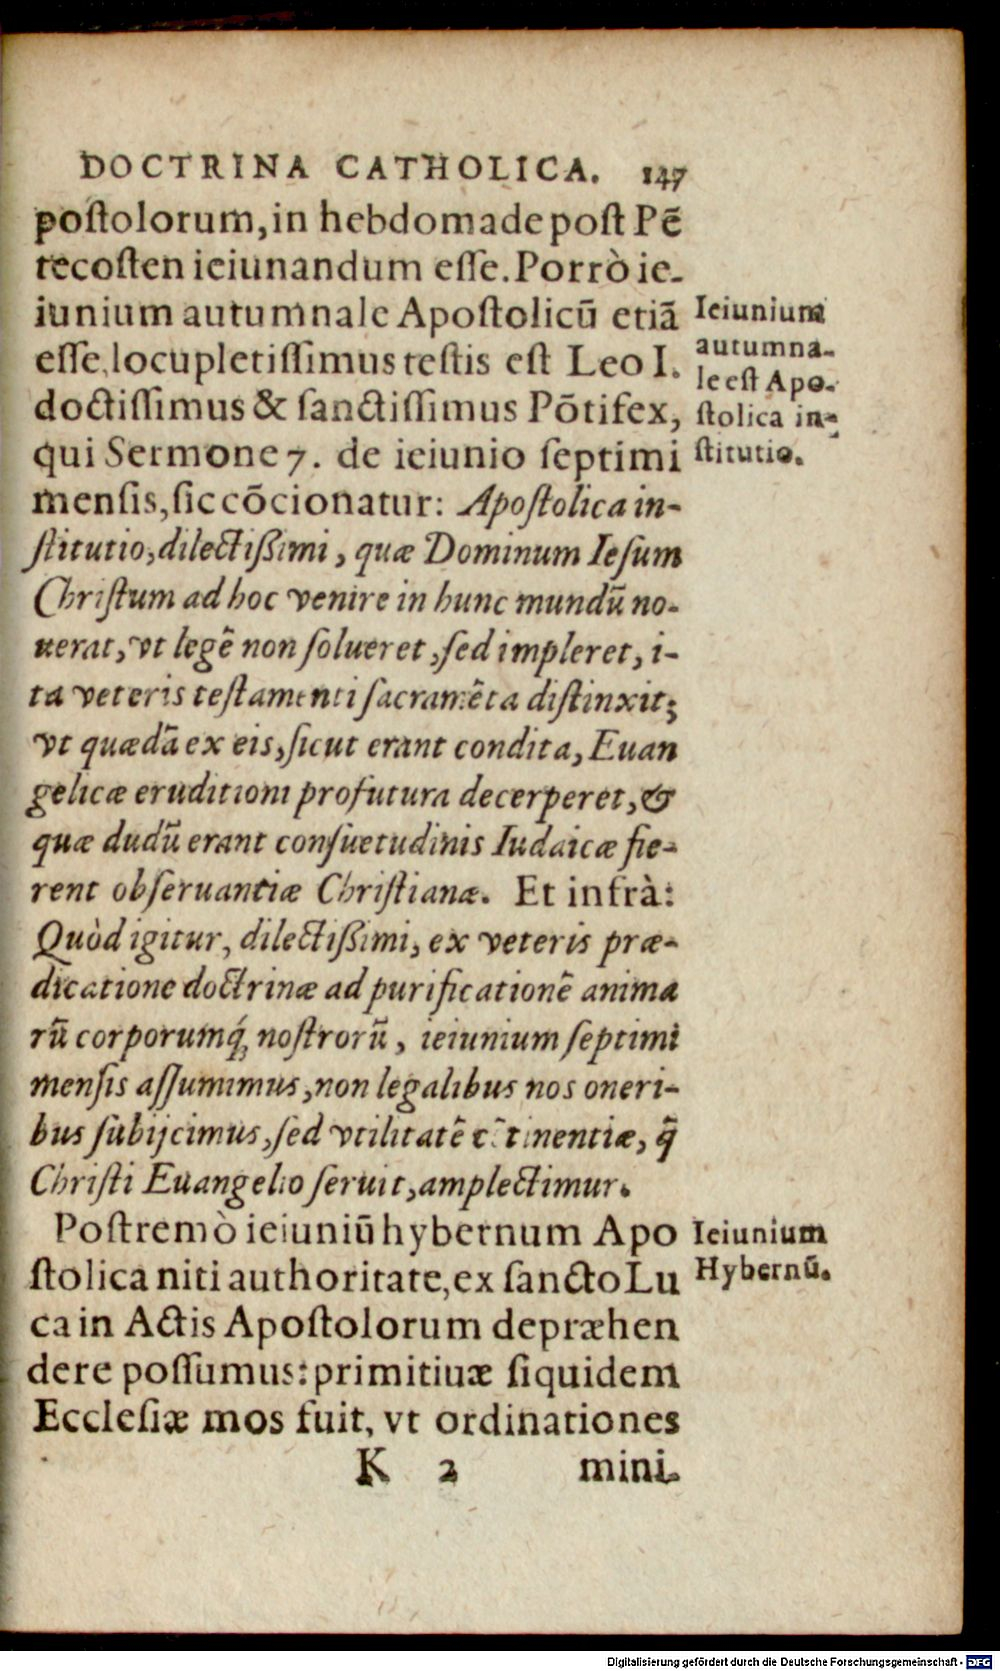 DOCTRINA CATHOLICA. 147
poſtolorum, in hebdomade poſt Pẽ
tecoſten ieiunandum eſſe. Porrò ie-
iunium autumnale Apoſtolicũ etiã
eſſe, locupletiſſimus teſtis eſt Leo I.
doctiſſimus & ſanctiſſimus Põtifex,
qui Sermone 7. de ieiunio ſeptimi
menſis, ſic cõcionatur: Apoſtolica in-
ſtitutio, dilectißimi, quæ Dominum Ieſum
Chriſtum ad hoc venire in hunc mundũ no-
uerat, vt legẽ non ſolueret, ſed impleret, i-
ta veteris teſtamenti ſacramẽta diſtinxit;
vt quædã ex eis, ſicut erant condita, Euan
gelicæ eruditioni profutura decerperet, &
quæ dudũ erant conſuetudinis Iudaicæ fie-
rent obſeruantiæ Chriſtianæ. Et infrà:
Quòd igitur, dilectißimi, ex veteris præ-
dicatione doctrinæ ad purificationẽ anima
rũ corporumq́; noſtrorũ, ieiunium ſeptimi
menſis aſſumimus, non legalibus nos oneri-
bus ſubijcimus, ſed vtilitatẽ cõtinentiæ, q̃
Chriſti Euangelio ſeruit, amplectimur.
Poſtremò ieiuniũ hybernum Apo
ſtolica niti authoritate, ex ſancto Lu
ca in Actis Apoſtolorum depræhen
dere poſſumus: primitiuæ ſiquidem
Eccleſiæ mos fuit, vt ordinationes
K 2 mini-
Ieiunium
autumna-
le eſt Apo-
ſtolica in-
ſtitutio.
Ieiunium
Hybernũ.
Digitalisierung gefördert durch die Deutsche Forschungsgemeinschaft - DFG